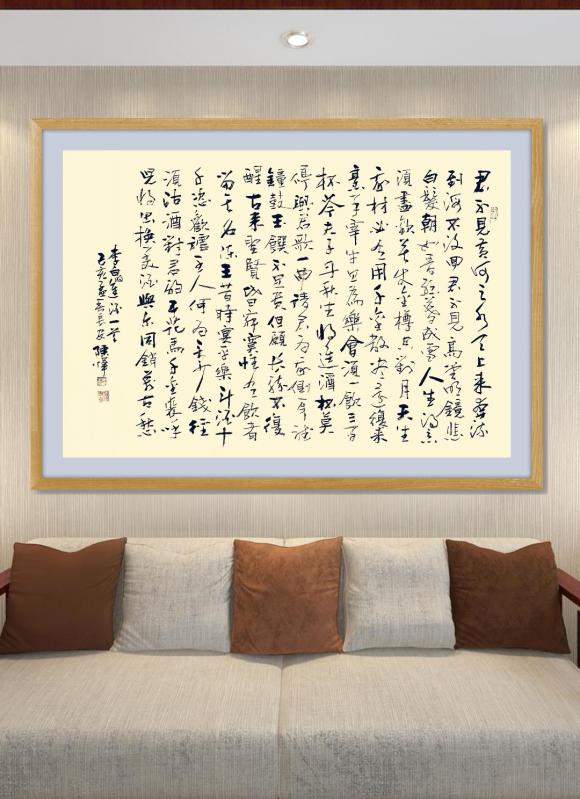 君不見黃河之水天上來奔流
到海不復回君不見高堂明鏡悲
白髮朝如青絲暮成雪人生得意
須盡歡莫使金樽空對月天生
我材必有用千金散盡還復來
烹羊宰牛且為樂會須一飲三百
杯岑夫子丹丘生將進酒杯莫
停與君歌一曲請君為我側耳聽
鐘鼓玉饌不足貴但願長醉不復
醒古來聖賢皆寂寞惟有飲者
留其名陳王昔時宴平樂斗酒十
千恣歡謔主人何為言少錢徑
須沽酒對君酌五花馬千金裘呼
兒將出換美酒與爾同銷萬古愁
李白進酒一首
己亥夏長安陳